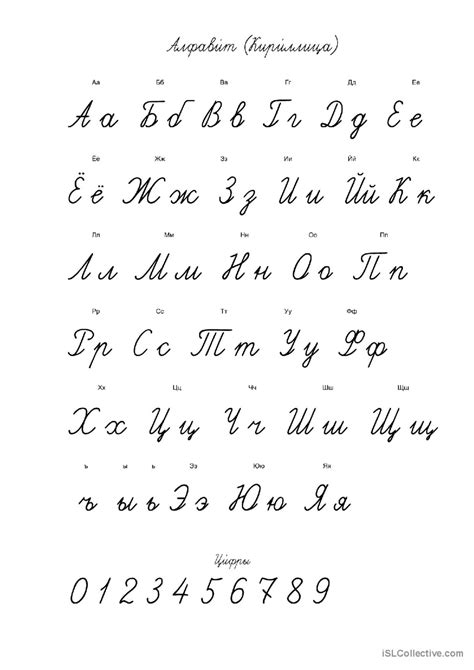 Алфави́т (Кири́ллица)
Аа Бб Вв Гг Дд Ее
А а Б б В в Г г Д д Е е
Ёё Жж Зз Ии Йй Кк
Ё ё Ж ж З з И и Й й К к
Лл Мм Нн Оо Пп
Л л М м Н н О о П п
Рр Сс Тт Уу Фф
Р р С с Т т У у Ф ф
Хх Цц Чч Шш Щщ
Х х Ц ц Ч ч Ш ш Щ щ
ъ ы ь Ээ Юю Яя
ъ ы ь Э э Ю ю Я я
Ци́фры
0 1 2 3 4 5 6 7 8 9
iSLCollective.com